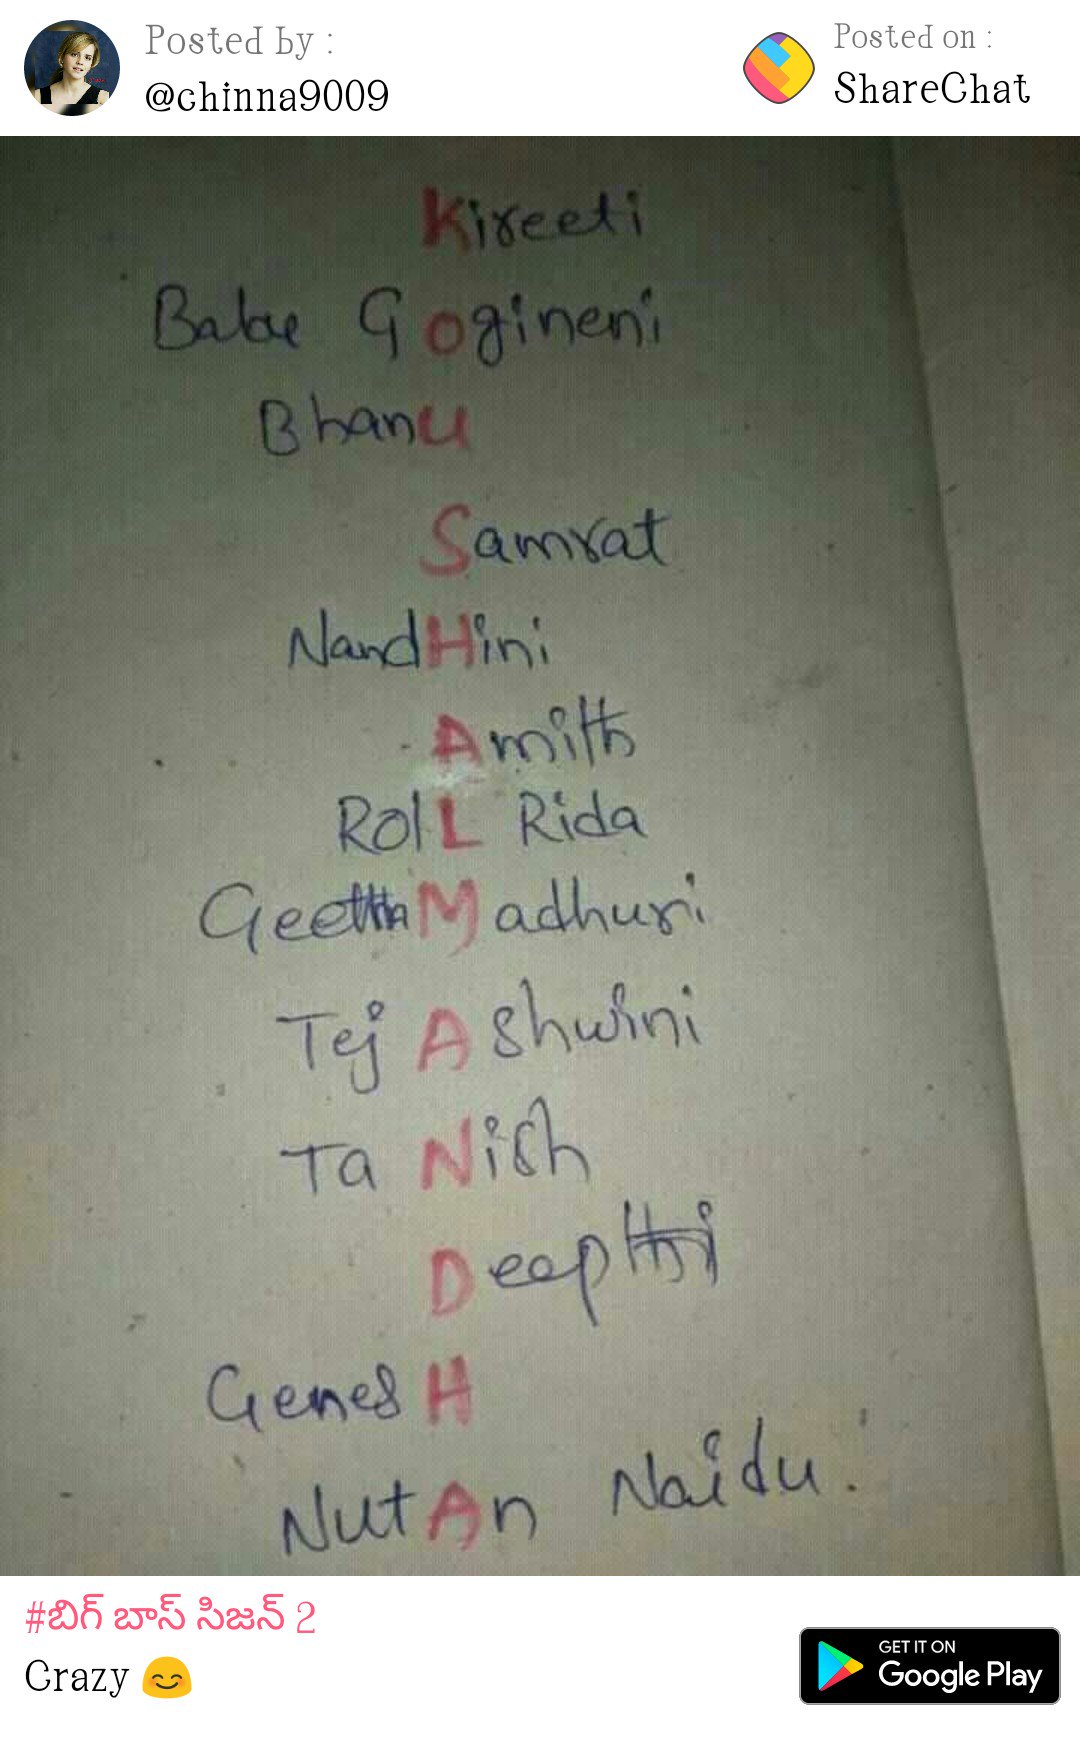 Posted by :
@chinna9009
Posted on :
ShareChat
Kireeti
Babu Gogineni
BhanU
Samrat
NandHini
Amith
RolL Rida
Geetha Madhuri
Tej Ashwini
Ta Nish
Deepthi
GenesH
NutAn Naidu.
#బిగ్ బాస్ సిజన్ 2
Crazy 😊
GET IT ON
Google Play